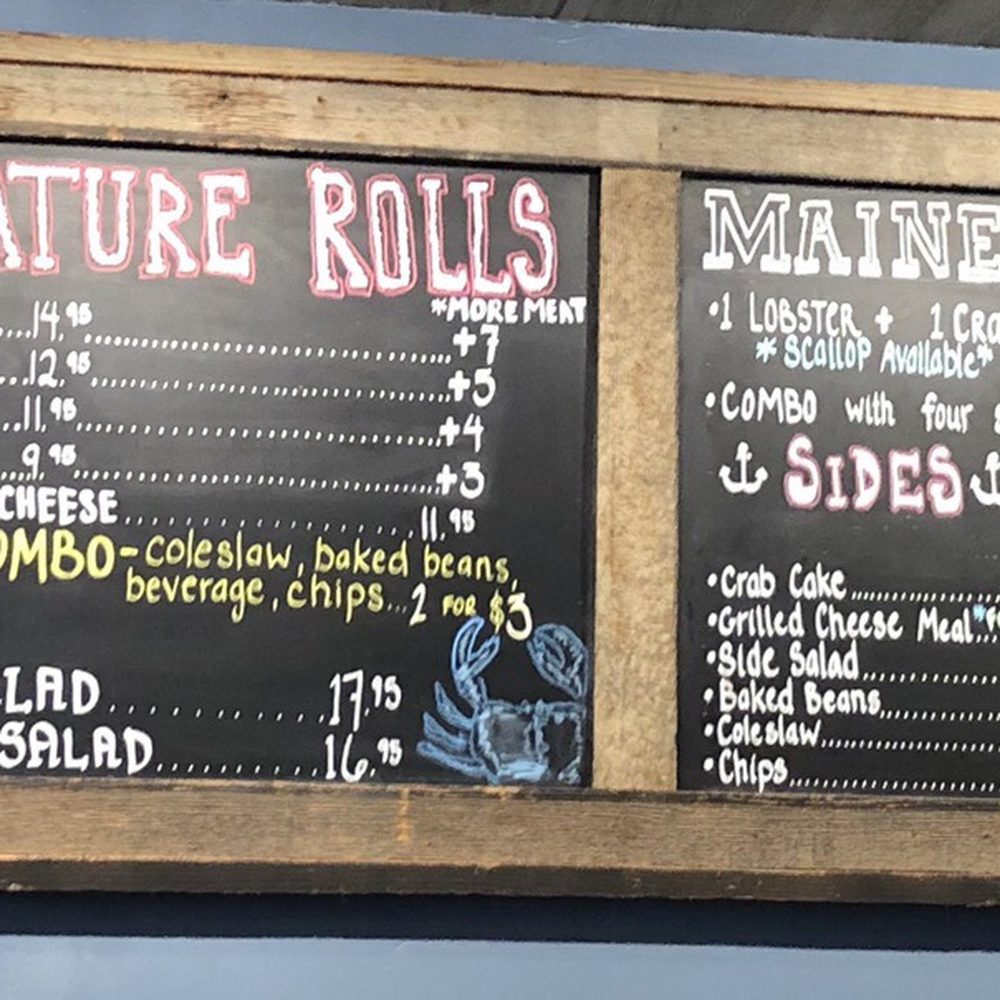 ATURE ROLLS
*MORE MEAT
....14.95........................................+7
...12.95........................................+5
...11.95........................................+4
....9.95........................................+3
CHEESE....................11.95
OMBO-coleslaw, baked beans,
beverage, chips...2 FOR $3
LAD............17.95
SALAD............16.95
MAINE
•1 LOBSTER + 1 CRA
*SCallOP Available*
•COMBO with four
SIDES
•Crab Cake..............
•Grilled Cheese Meal*
•Side Salad..............
•Baked Beans............
•Coleslaw................
•Chips....................